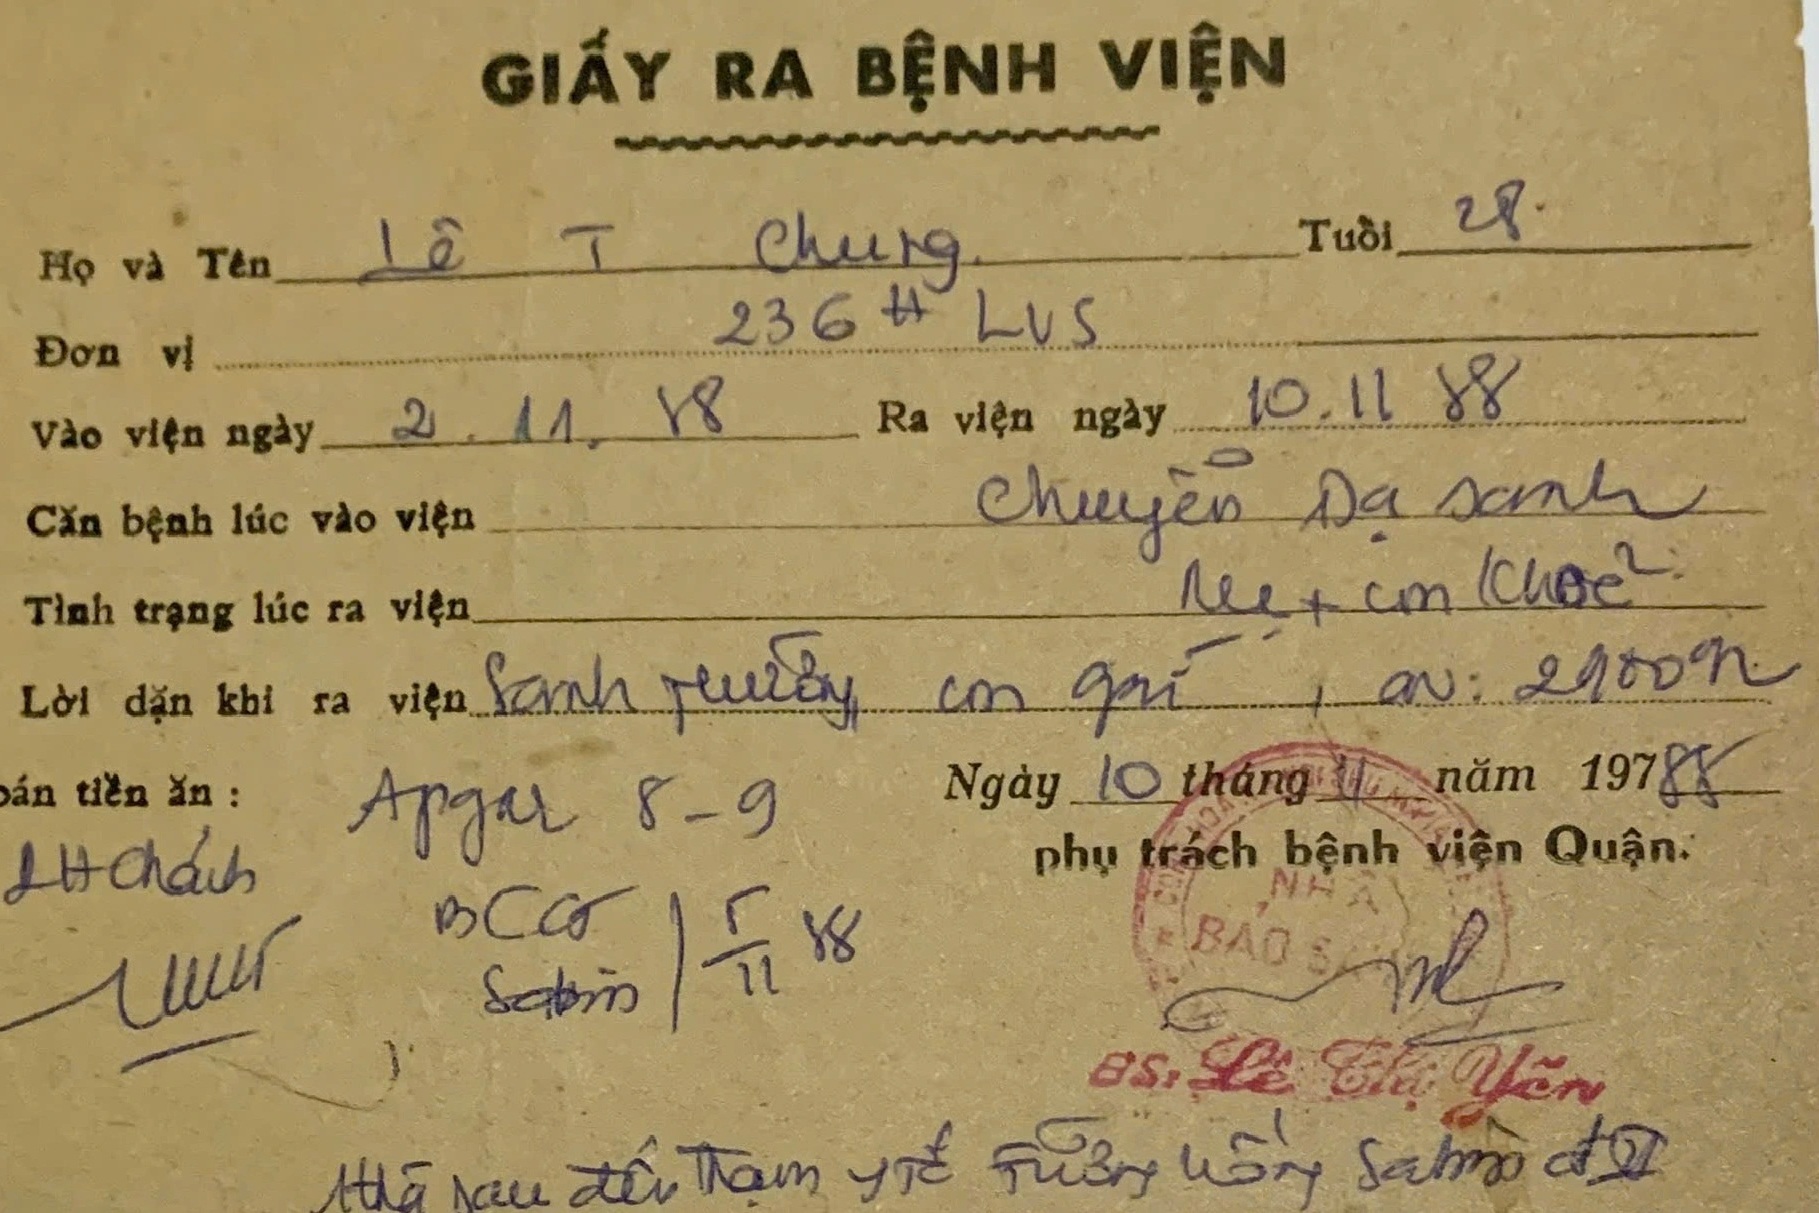 GIẤY RA BỆNH VIỆN
Họ và Tên Lê T Chung. Tuổi 28.
Đơn vị 236 # LVS
Vào viện ngày 2.11.88 Ra viện ngày 10.11 88
Căn bệnh lúc vào viện Chuyển Dạ sanh
Tình trạng lúc ra viện Mẹ + con khoẻ
Lời dặn khi ra viện Sanh thường con gái, CN: 2900g
oán tiền ăn : Apgar 8-9 Ngày 10 tháng 11 năm 19788
phụ trách bệnh viện Quận.
BCG
Sabin 5/11 88
NHÀ
BẢO S
BS: Lê Thị Yến
sau đến Trạm y tế uống Sabin